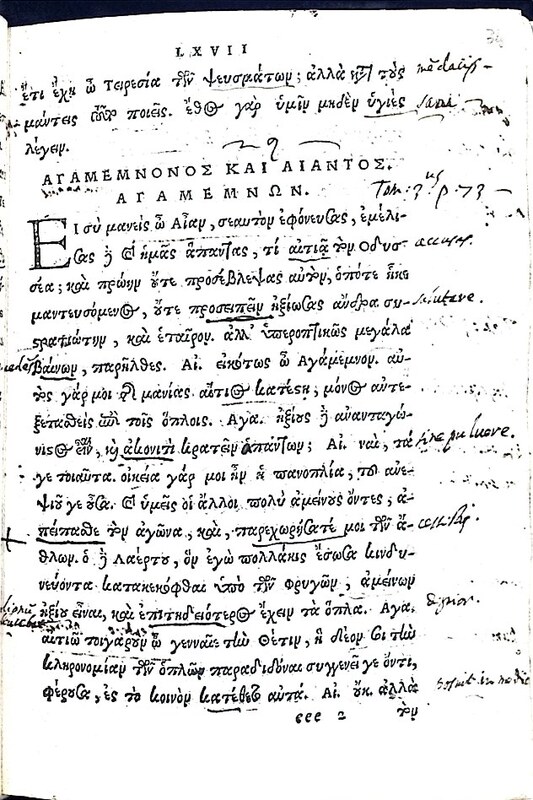 LXVII
ἔτι ἔχῃ ὦ Τειρεσία τῶν ψευσμάτων; ἀλλὰ καὶ τοὺς
μάντεις ποιεῖς. ἔθος γὰρ ὑμῖν μηδὲν ὑγιὲς
λέγειν.
ΑΓΑΜΕΜΝΟΝΟΣ ΚΑΙ ΑΙΑΝΤΟΣ.
ΑΓΑΜΕΜΝΩΝ. Tom: 3. p. 73
Εἰ σὺ μανεὶς ὦ Αἶαν, σεαυτὸν ἐφόνευσας, ἐμέλι-
σας δὲ καὶ ἡμᾶς ἅπαντας, τί αἰτιᾷ τὸν Ὀδυσ-
σέα; καὶ πρώην οὔτε προσέβλεψας αὐτὸν, ὁπότε ἧκε
μαντευσόμενος, οὔτε προσειπεῖν ἠξίωσας ἄνδρα συ-
στρατιώτην, καὶ ἑταῖρον. ἀλλ' ὑπεροπτικῶς μεγάλα
βαίνων, παρῆλθες. Αἰ. εἰκότως ὦ Αγάμεμνον. αὐ-
τὸς γάρ μοι τῆς μανίας αἴτιος κατέστη, μόνος ἀντε-
ξετασθεὶς ἐπὶ τοῖς ὅπλοις. Αγα. ἠξίους δὲ ἀνανταγώ-
νιστος εἶναι, καὶ ἀκονιτὶ κρατεῖν ἁπάντων; Αἰ. ναὶ, τά
γε τοιαῦτα. οἰκεία γάρ μοι ἦν ἡ πανοπλία, τοῦ ἀνε-
ψιοῦ γε οὖσα. καὶ ὑμεῖς οἱ ἄλλοι πολὺ ἀμείνους ὄντες, ἀ-
πείπασθε τὸν ἀγῶνα, καὶ, παρεχωρήσατέ μοι τῶν ἄ-
θλων. ὁ δὲ Λαέρτου, ὃν ἐγὼ πολλάκις ἔσωσα κινδυ-
νεύοντα κατακεκόφθαι ὑπὸ τῶν φρυγῶν, ἀμείνων
ἠξίου εἶναι, καὶ ἐπιτηδειότερος ἔχειν τὰ ὅπλα. Αγα.
αἰτιῶ τοιγαροῦν ὦ γενναῖε τὴν Θέτιν, ἣ δέον σοι τὴν
κληρονομίαν τῶν ὅπλων παραδιδόναι συγγενεῖ γε ὄντι,
φέρουσα, ἐς τὸ κοινὸν κατέθετο αὐτά. Αἰ. οὔκ. ἀλλὰ
ccc 2 τὸν